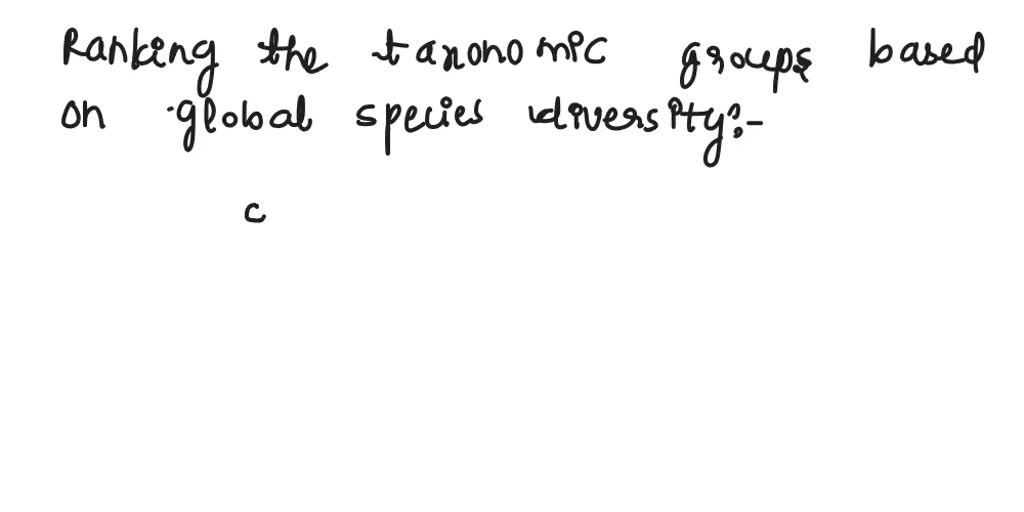 Ranking the taxonomic groups based
on global species diversity:-
c